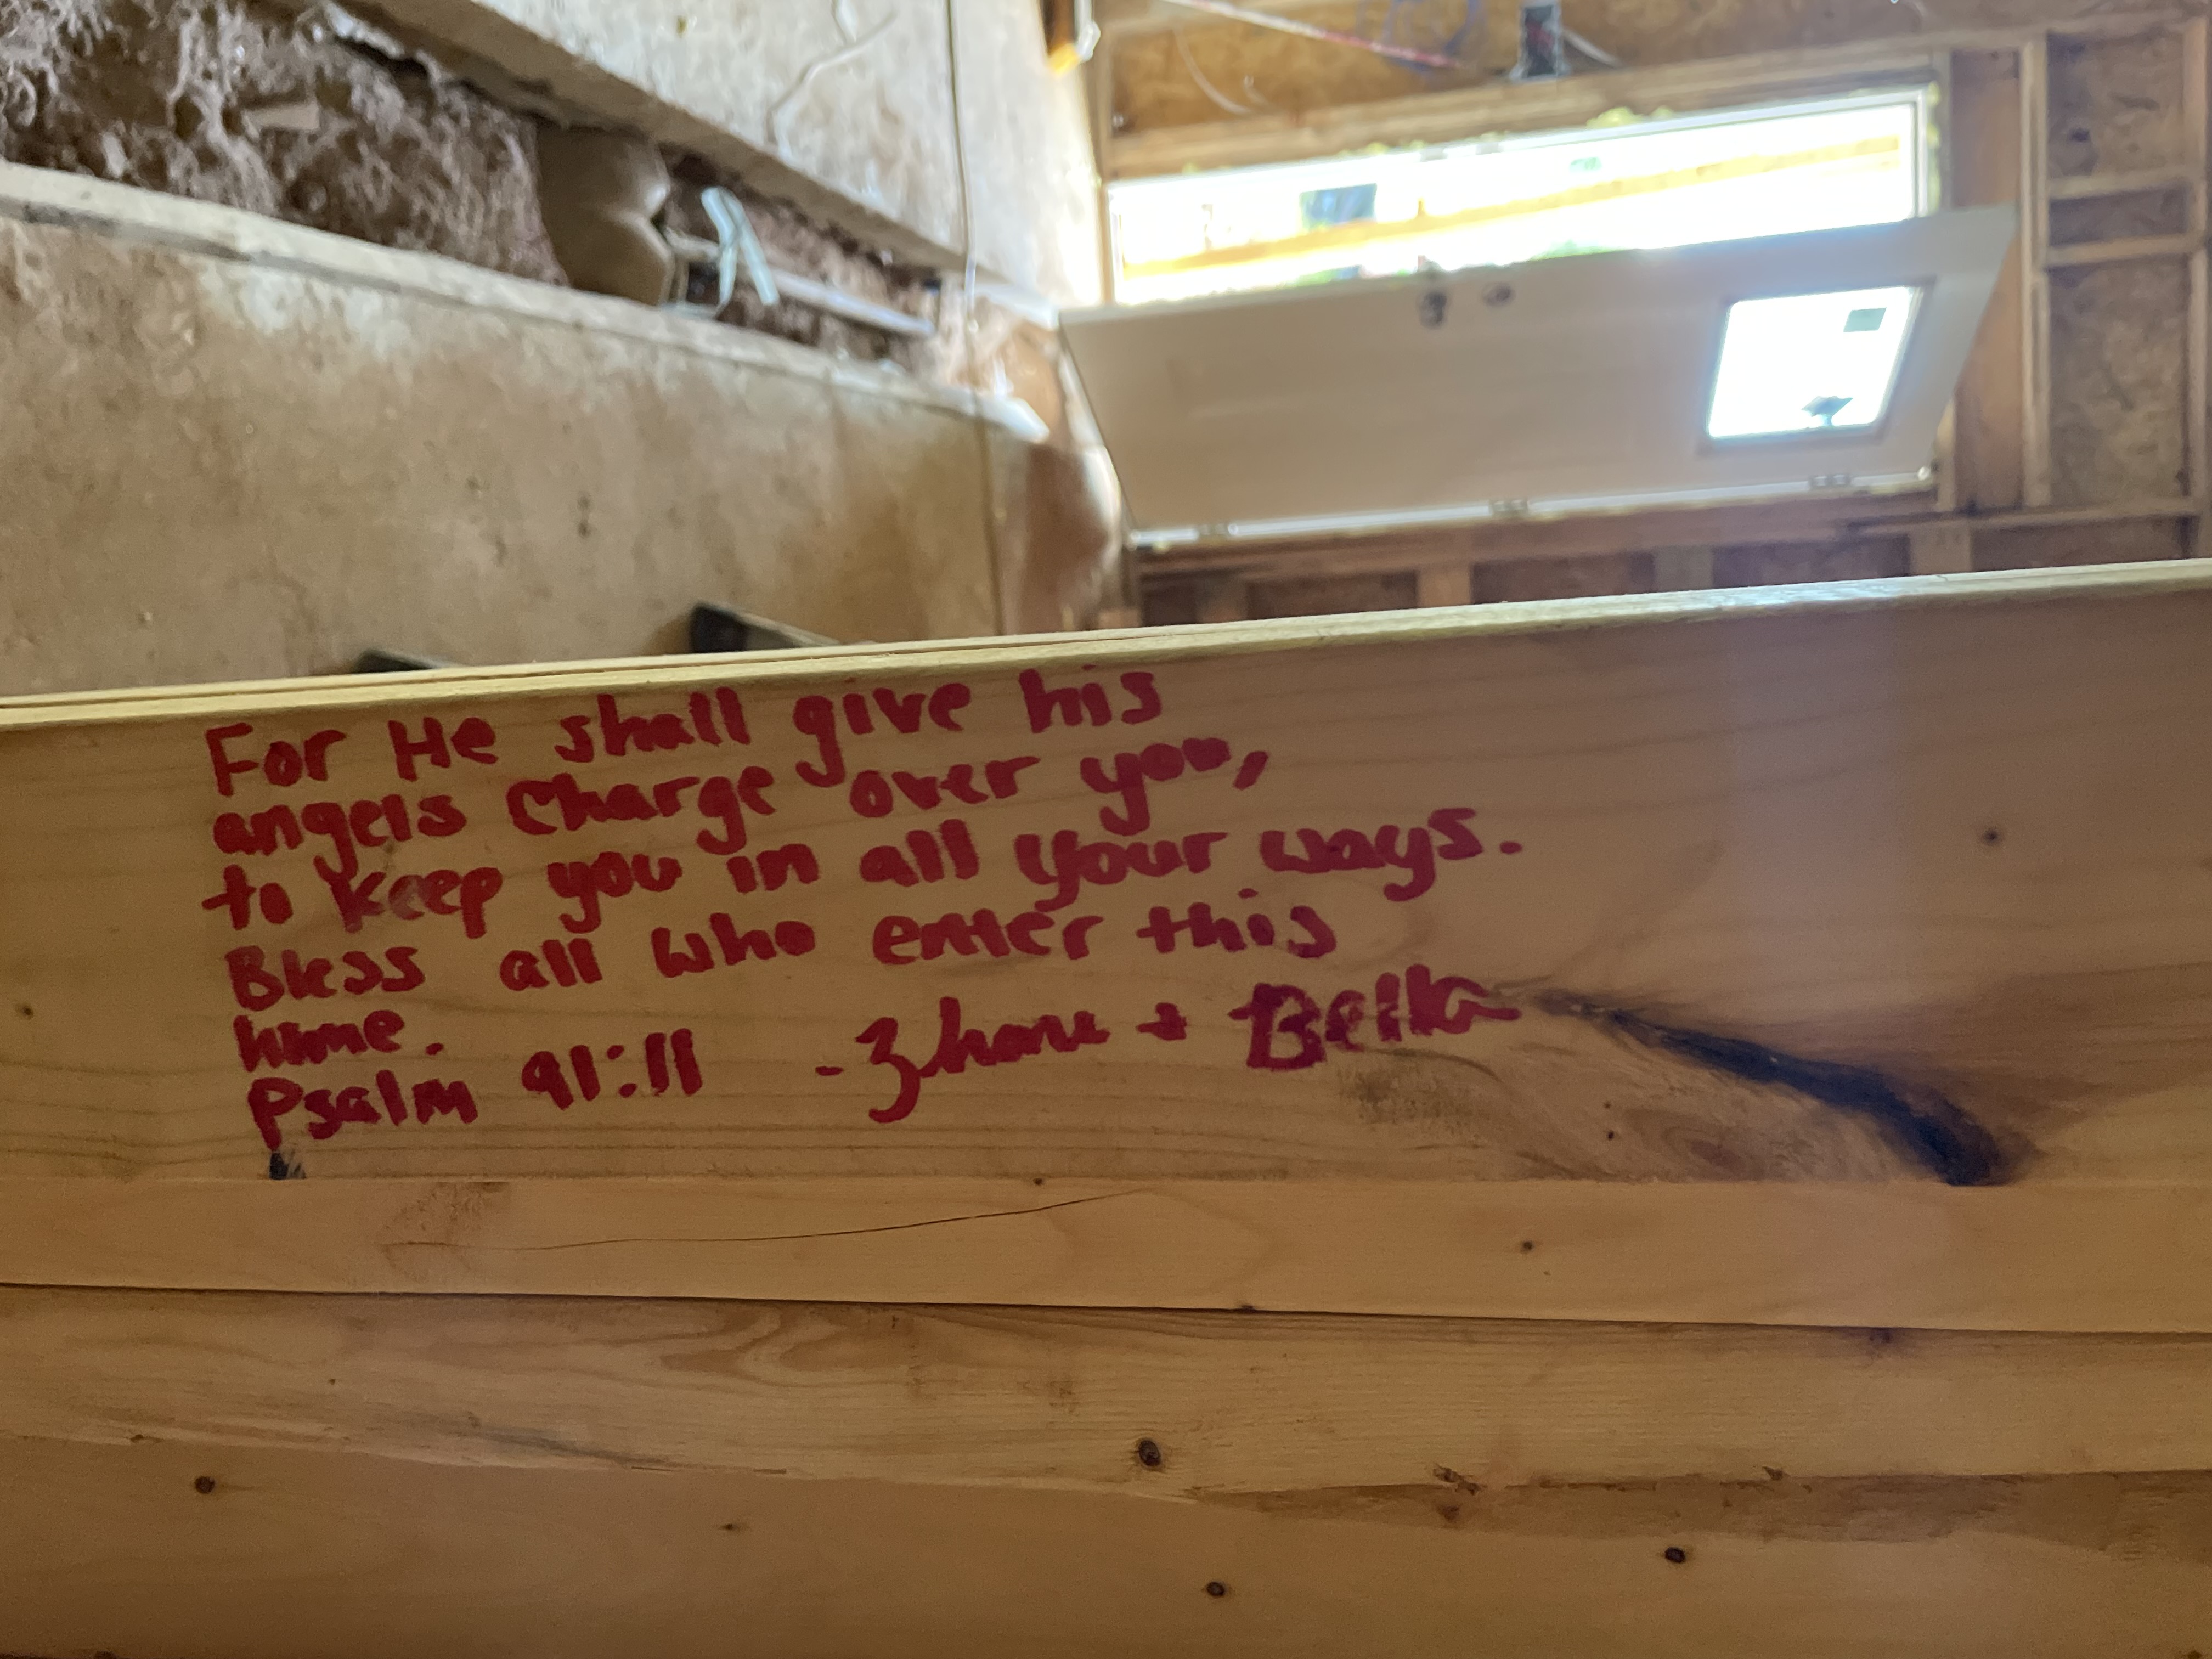 For He shall give his
angels charge over you,
to keep you in all your ways.
Bless all who enter this
home.
Psalm 91:11 - + Bella